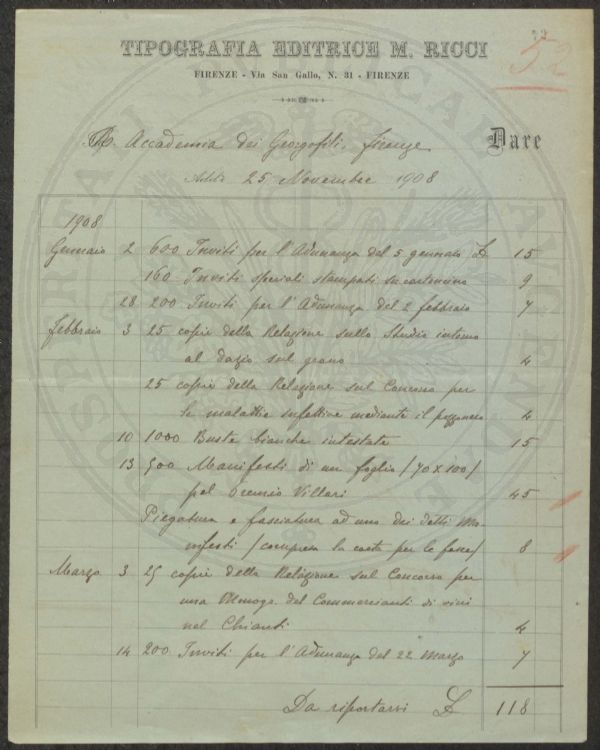 73
52
TIPOGRAFIA EDITRICE M. RICCI
FIRENZE - Via San Gallo, N. 31 - FIRENZE
R. Accademia dei Georgofili. Firenze Dare
Addì 25 Novembre 1908
1908
Gennaio 2 600 Inviti per l'Adunanza del 5 gennaio £ 15
160 Inviti speciali stampati su cartoncino 9
28 200 Inviti per l'Adunanza del 2 febbraio 7
Febbraio 3 25 copie della Relazione sullo Studio intorno
al dazio sul grano 4
25 copie della Relazione sul Concorso per
le malattie infettive mediante il 4
10 1000 Buste bianche intestate 15
13 500 Manifesti di un foglio (70 x 100)
pel Premio Villari 45
Piegatura e fasciatura ad uno dei detti Ma-
nifesti (compresa la carta per le fasce) 8
Marzo 3 25 copie della Relazione sul Concorso per
una Monogr. del Commercianti di vini
nel Chianti 4
14 200 Inviti per l'Adunanza del 22 Marzo 7
Da riportarsi £ 118